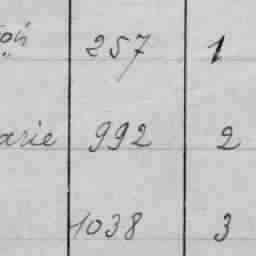 257 1
arie 992 2
1038 3